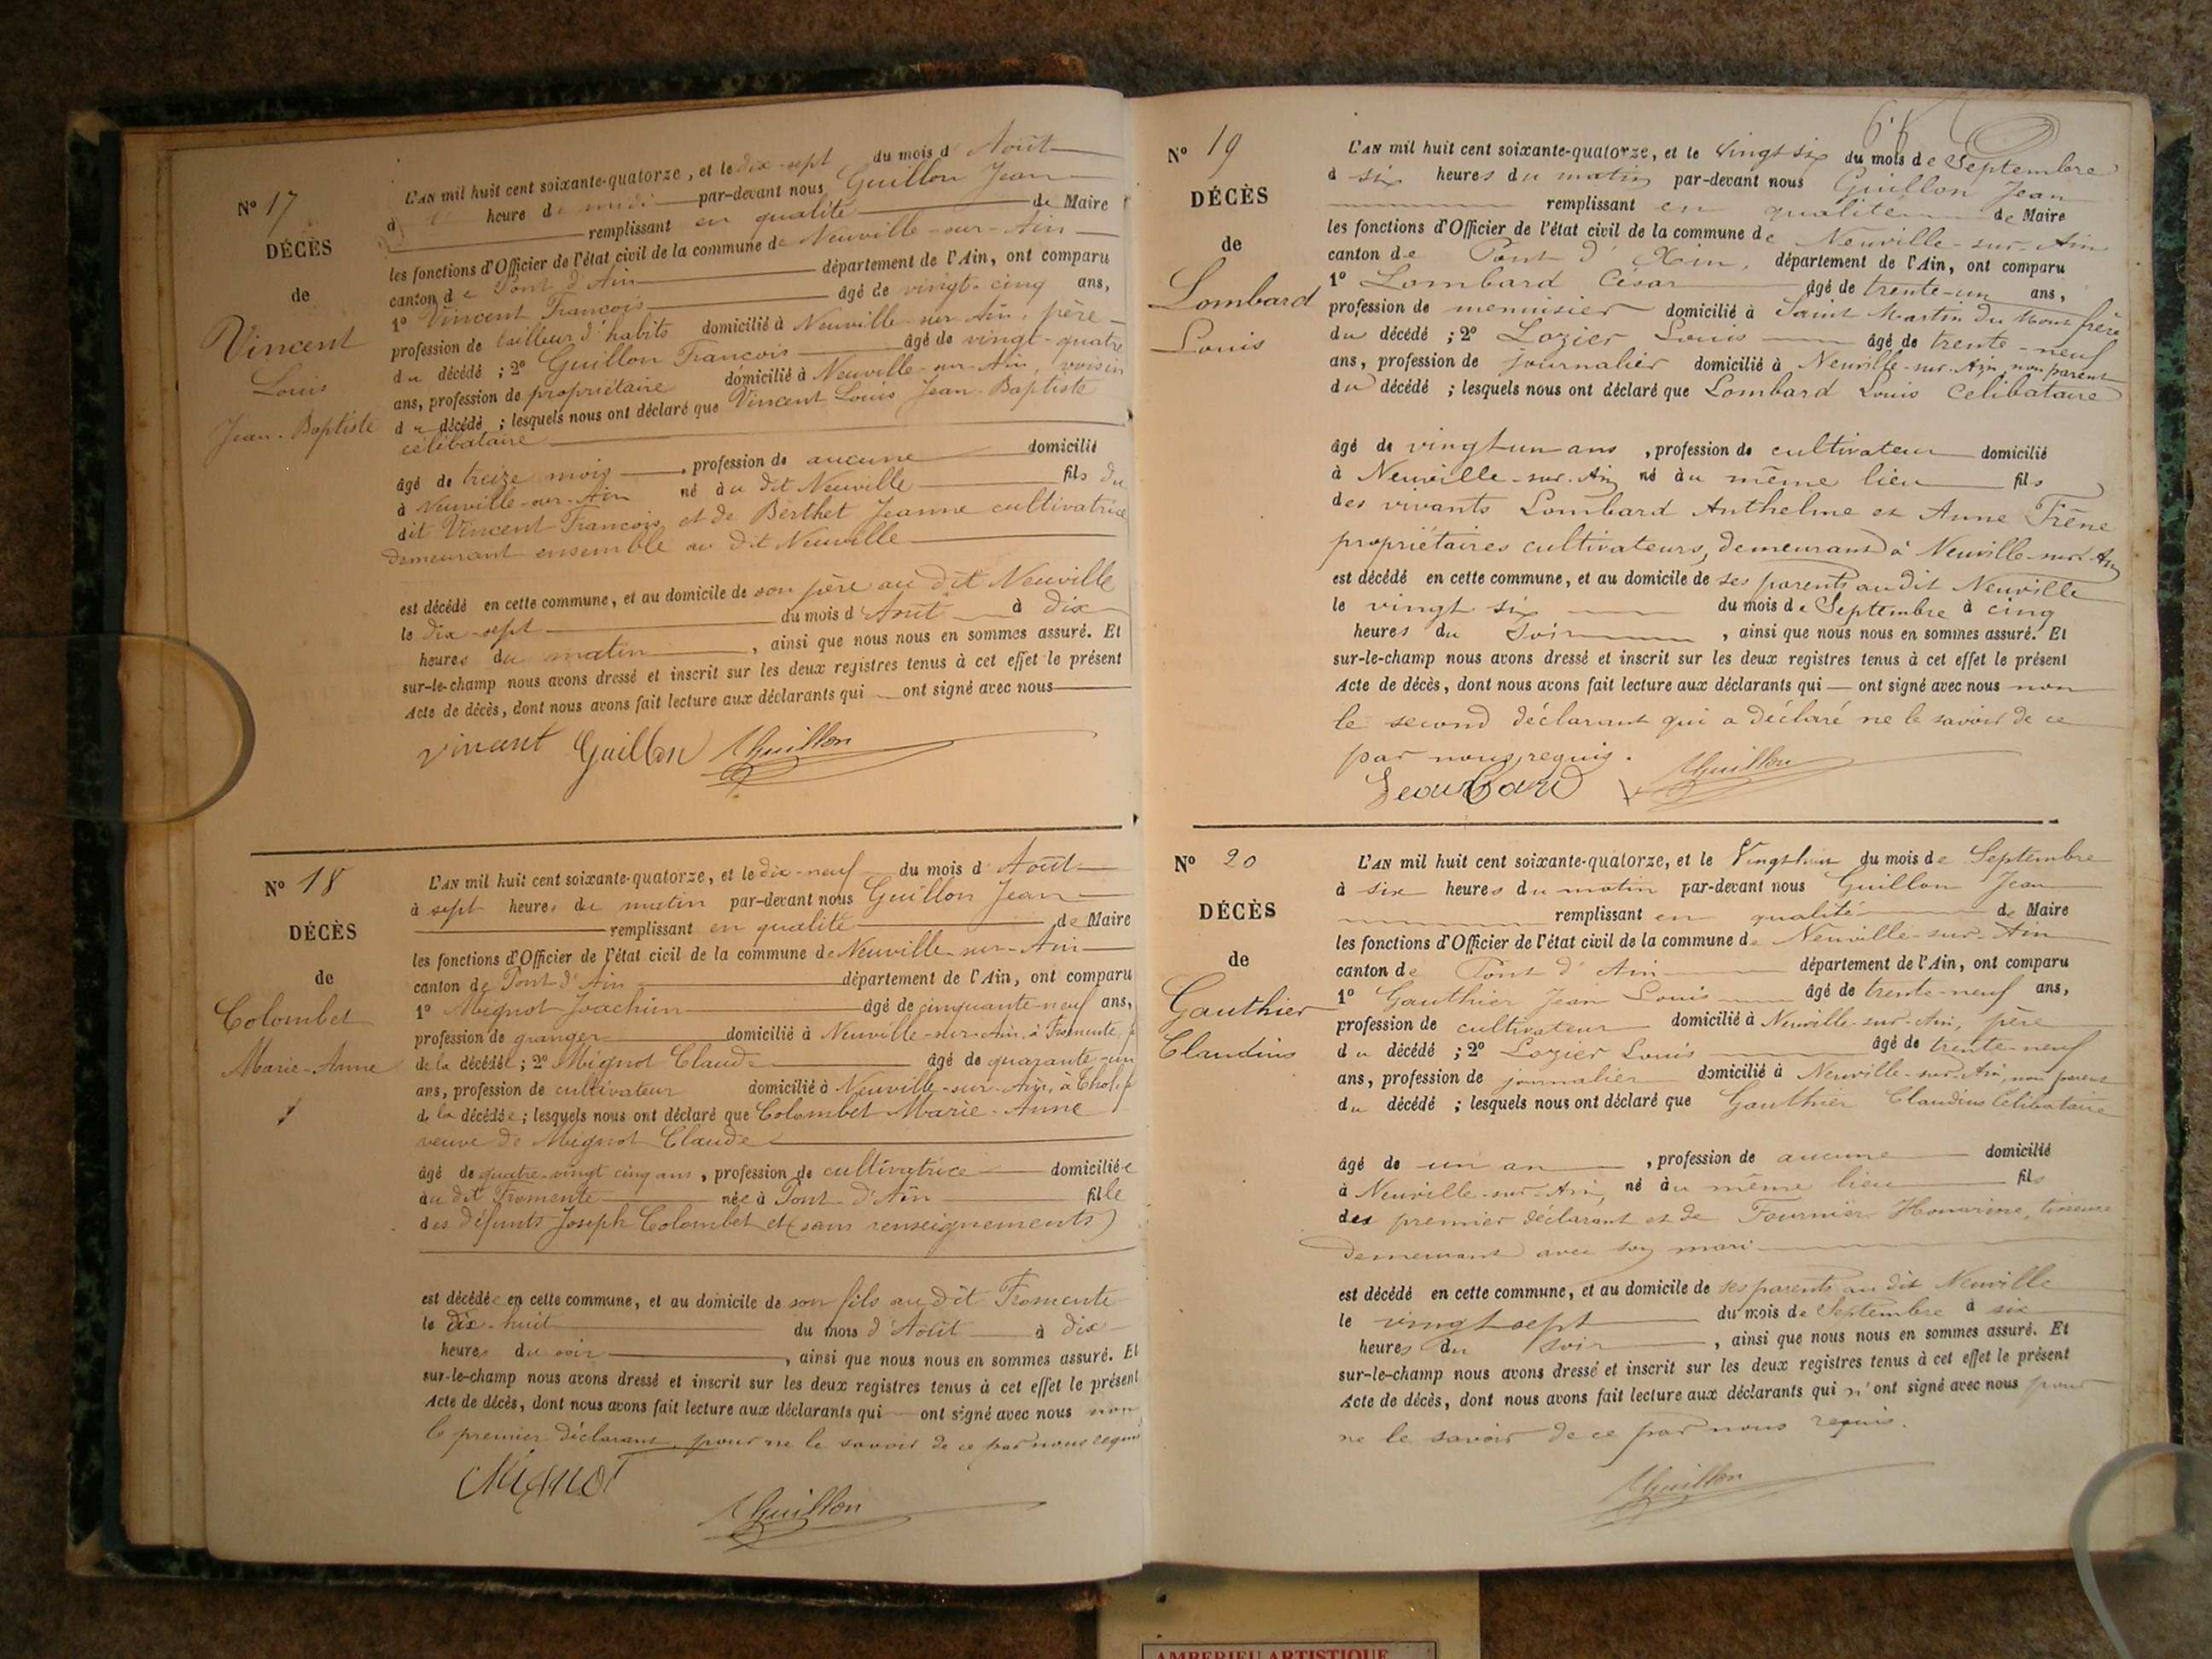 N° 17
DÉCÈS
de
Vincent
Louis
Jean-Baptiste
L'AN mil huit cent soixante-quatorze, et le dix-sept du mois d'Août
à heure de midi par-devant nous Guillon Jean
remplissant en qualité de Maire
les fonctions d'Officier de l'état civil de la commune de Neuville-sur-Ain
canton de Pont d'Ain département de l'Ain, ont comparu
1° Vincent François âgé de vingt-cinq ans,
profession de tailleur d'habits domicilié à Neuville-sur-Ain, père
du décédé ; 2° Guillon François âgé de vingt-quatre
ans, profession de propriétaire domicilié à Neuville-sur-Ain, voisin
du décédé ; lesquels nous ont déclaré que Vincent Louis Jean-Baptiste
célibataire
âgé de treize mois, profession de aucune domicilié
à Neuville-sur-Ain né au dit Neuville fils du
dit Vincent François et de Berthet Jeanne cultivatrice
demeurant ensemble au dit Neuville
est décédé en cette commune, et au domicile de son père au dit Neuville
le dix-sept du mois d'Août à dix
heures du matin, ainsi que nous nous en sommes assuré. Et
sur-le-champ nous avons dressé et inscrit sur les deux registres tenus à cet effet le présent
Acte de décès, dont nous avons fait lecture aux déclarants qui ont signé avec nous
Vincent Guillon Guillon
N° 18
DÉCÈS
de
Colombet
Marie-Anne
L'AN mil huit cent soixante-quatorze, et le dix-neuf du mois d'Août
à sept heures du matin par-devant nous Guillon Jean
remplissant en qualité de Maire
les fonctions d'Officier de l'état cicil de la commune de Neuville-sur-Ain
canton de Pont d'Ain département de l'Ain, ont comparu
1° Mignot Joachim âgé de cinquante-neuf ans,
profession de granger domicilié à Neuville-sur-Ain, à Fromente,
de la décédée ; 2° Mignot Claude âgé de quarante-un
ans, profession de cultivateur domicilié à Neuville-sur-Ain, à
de la décédée ; lesquels nous ont déclaré que Colombet Marie-Anne
veuve de Mignot Claude
âgé de quatre-vingt cinq ans, profession de cultivatrice domiciliée
au dit Fromente née à Pont-d'Ain fille
des défunts Joseph Colombet et (sans renseignements)
est décédée en cette commune, et au domicile de son fils au dit Fromente
le dix-huit du mois d'Août à dix
heures du soir, ainsi que nous nous en sommes assuré. Et
sur-le-champ nous avons dressé et inscrit sur les deux registres tenus à cet effet le présent
Acte de décès, dont nous avons fait lecture aux déclarants qui ont signé avec nous non
le premier déclarant pour ne le savoir de ce par nous requis
Mignot
Guillon
N° 19
DÉCÈS
de
Lombard
Louis
L'AN mil huit cent soixante-quatorze, et le vingt six du mois de Septembre
à six heures du matin par-devant nous Guillon Jean
remplissant en qualité de Maire
les fonctions d'Officier de l'état civil de la commune de Neuville-sur-Ain
canton de Pont d'Ain, département de l'Ain, ont comparu
1° Lombard César âgé de trente-un ans,
profession de menuisier domicilié à Saint Martin du Mont frère
du décédé ; 2° Lozier Louis âgé de trente-neuf
ans, profession de journalier domicilié à Neuville-sur-Ain, non parent
du décédé ; lesquels nous ont déclaré que Lombard Louis Célibataire
âgé de vingt un ans, profession de cultivateur domicilié
à Neuville-sur-Ain né au même lieu fils
des vivants Lombard Anthelme et Anne Frêne
propriétaires cultivateurs, demeurant à Neuville-sur-Ain
est décédé en cette commune, et au domicile de ses parents au dit Neuville
le vingt six du mois de Septembre à cinq
heures du soir, ainsi que nous nous en sommes assuré. Et
sur-le-champ nous avons dressé et inscrit sur les deux registres tenus à cet effet le présent
Acte de décès, dont nous avons fait lecture aux déclarants qui ont signé avec nous non
le second déclarant qui a déclaré ne le savoir de ce
par nous requis.
Guillon
N° 20
DÉCÈS
de
Gauthier
Claudius
L'AN mil huit cent soixante-quatorze, et le Vingt huit du mois de Septembre
à six heures du matin par-devant nous Guillon Jean
remplissant en qualité de Maire
les fonctions d'Officier de l'état civil de la commune de Neuville-sur-Ain
canton de Pont d'Ain département de l'Ain, ont comparu
1° Gauthier Jean Louis âgé de trente-neuf ans,
profession de cultivateur domicilié à Neuville-sur-Ain, père
du décédé ; 2° Lozier Louis âgé de trente-neuf
ans, profession de journalier domicilié à Neuville-sur-Ain, non parent
du décédé ; lesquels nous ont déclaré que Gauthier Claudius Célibataire
âgé de un an, profession de aucune domicilié
à Neuville-sur-Ain, né au même lieu fils
des premier déclarant et de Fournier Honorine,
demeurant avec son mari
est décédé en cette commune, et au domicile de ses parents au dit Neuville
le vingt sept du mois de Septembre à six
heures du soir, ainsi que nous nous en sommes assuré. Et
sur-le-champ nous avons dressé et inscrit sur les deux registres tenus à cet effet le présent
Acte de décès, dont nous avons fait lecture aux déclarants qui n'ont signé avec nous pour
ne le savoir de ce par nous requis.
Guillon
AMBERIEU ARTISTIQUE